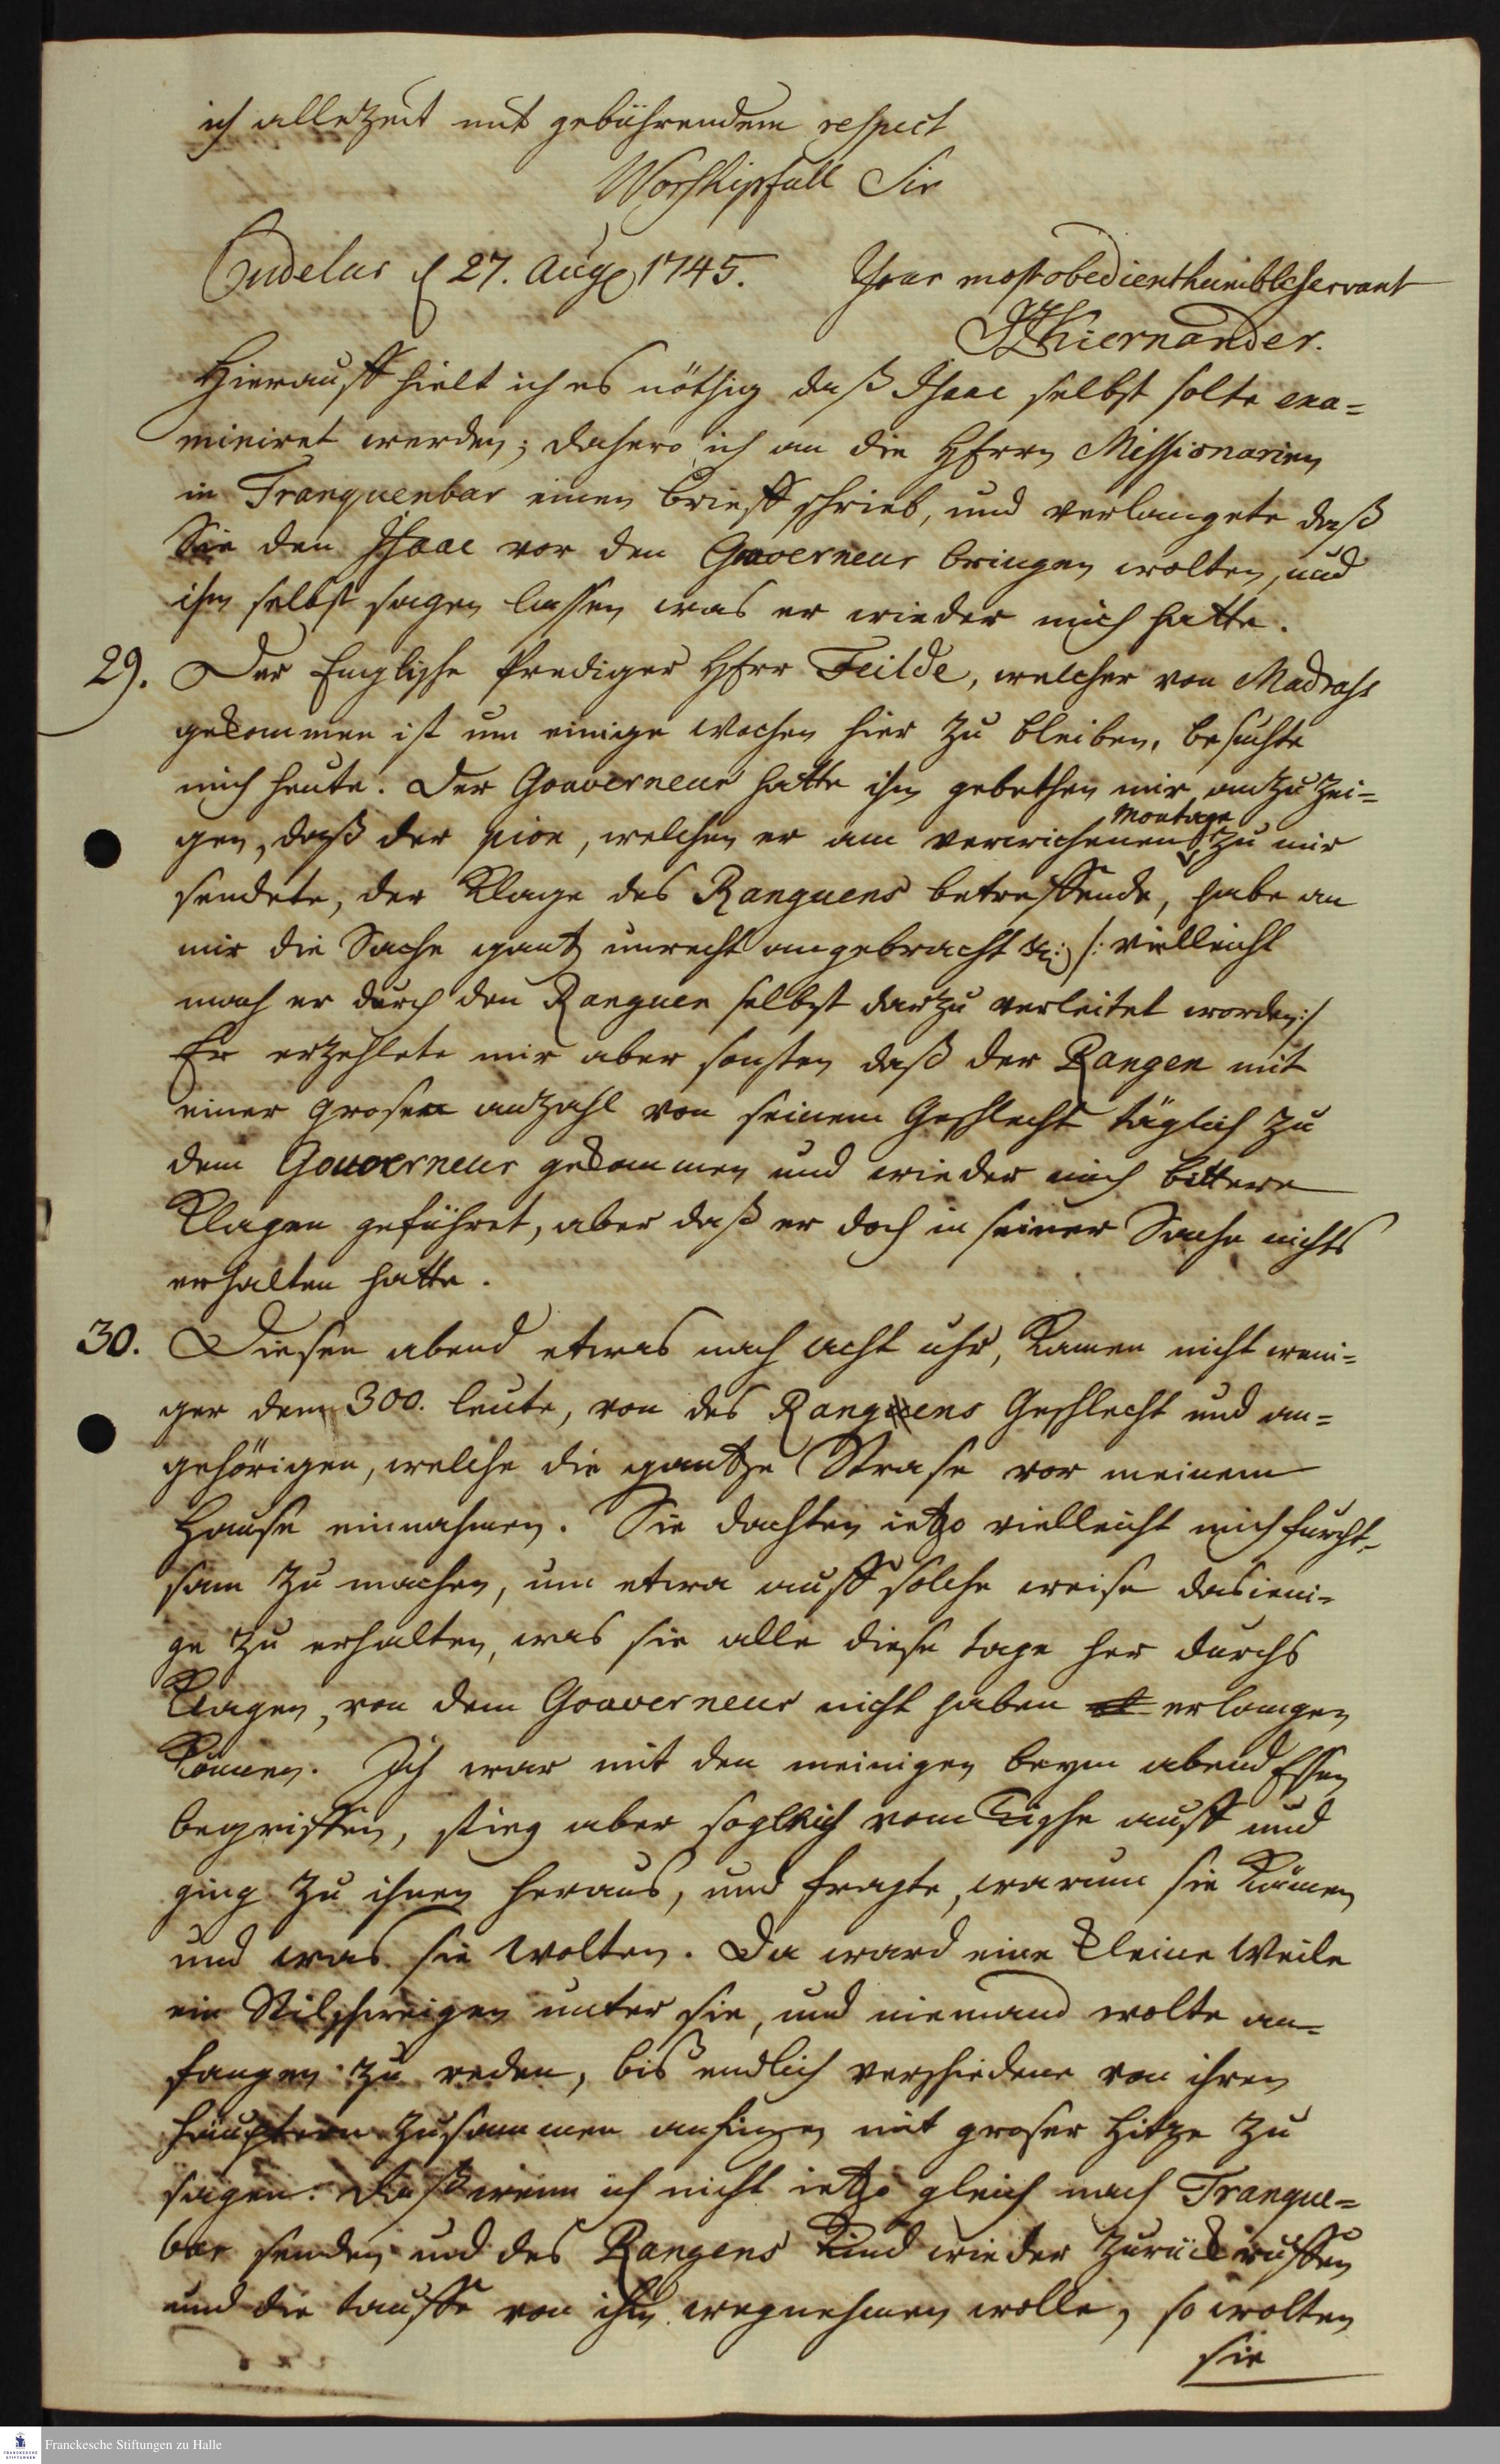 ich allezeit mit gebührendem respect
Worshipfull Sir
Cudelur d 27. Aug 1745. Your most obedient humble servant
JZKiernander.
Hierauff hielt ich es nöthig daß Isaac selbst solte exa=
miniret werden; dahero ich an die Herrn Missionarien
in Tranquenbar einen brieff schrieb, und verlangete daß
Sie den Isaac vor den Gouverneur bringen wolten, und
ihn selbst sagen lassen was er wieder mich hatte.
29. Der Englische Prediger Herr Feilde, welcher von Madrass
gekommen ist um einige wochen hier zu bleiben, besuchte
mich heute. Der Gouverneur hatte ihn gebethen mir anzuzei=
gen, daß der pion, welchen er am verwichenen Montage zu mir
sendete, der Klage des Ranguens betreffende, habe an
mir die Sache gantz unrecht angebracht &c; /: vielleicht
mach er durch den Ranguen selbst darzu verleitet worden:/
Er erzehlete mir aber sonsten daß der Rangen mit
einer grosen anzahl von seinem Geschlecht täglich zu
dem Gouverneur gekommen und wieder mich bittere
Klagen geführet, aber daß er doch in seiner Sache nichts
erhalten hatte.
30. Diesen abend etwas nach acht uhr, kamen nicht weni=
ger denn 300. leute, von des Rangens Geschlecht und an=
gehörigen, welche die gantze Strase vor meinem
Hause einnahmen. Sie dachten ietzo vielleicht mich furcht=
sam zu machen, um etwa auff solche weise dasieni=
ge zu erhalten, was sie alle diese tage her durchs
Klagen, von dem Gouverneur nicht haben erlangen
können. Ich war mit den meinigen beym abend Essen
begriffen, stieg aber sogleich vom Tische auff und
ging zu ihnen heraus, und fragte, warum sie kämen
und was sie wolten. Da ward eine kleine Weile
ein Stilschweigen unter sie, und niemand wolte an=
fangen zu reden, bis endlich verschiedene von ihren
häuptern zusammen anfingen mit groser hitze zu
sagen: daß wenn ich nicht ietzo gleich nach Tranque=
bar senden und des Rangens Kind wieder zurück ruffen
und die tauffe von ihm wegnehmen wolle, so wolten
sie
Franckesche Stiftungen zu Halle